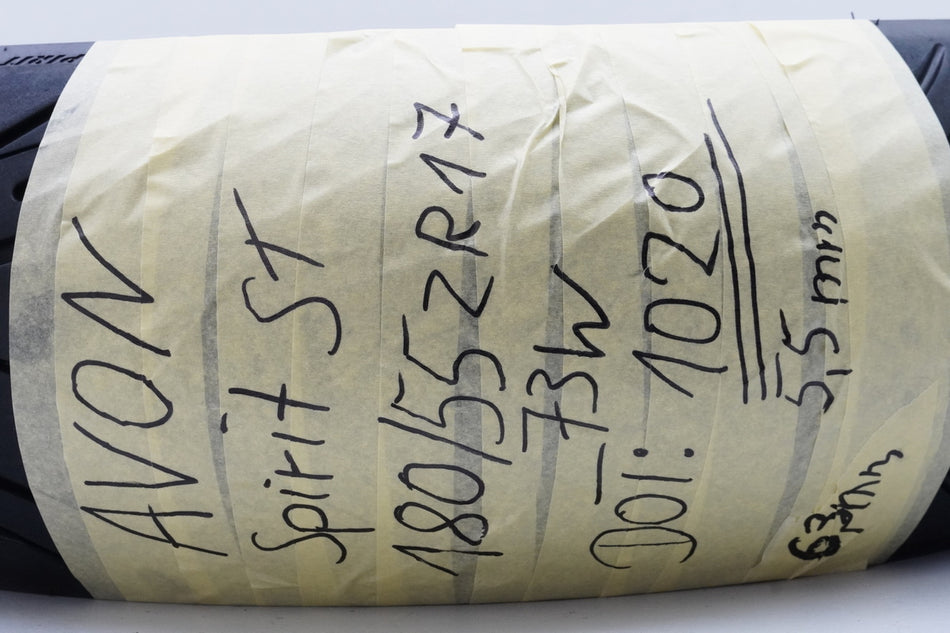 AVON
Spirit ST
180/55 ZR 17
73W
DOT: 1020
5,5 mm